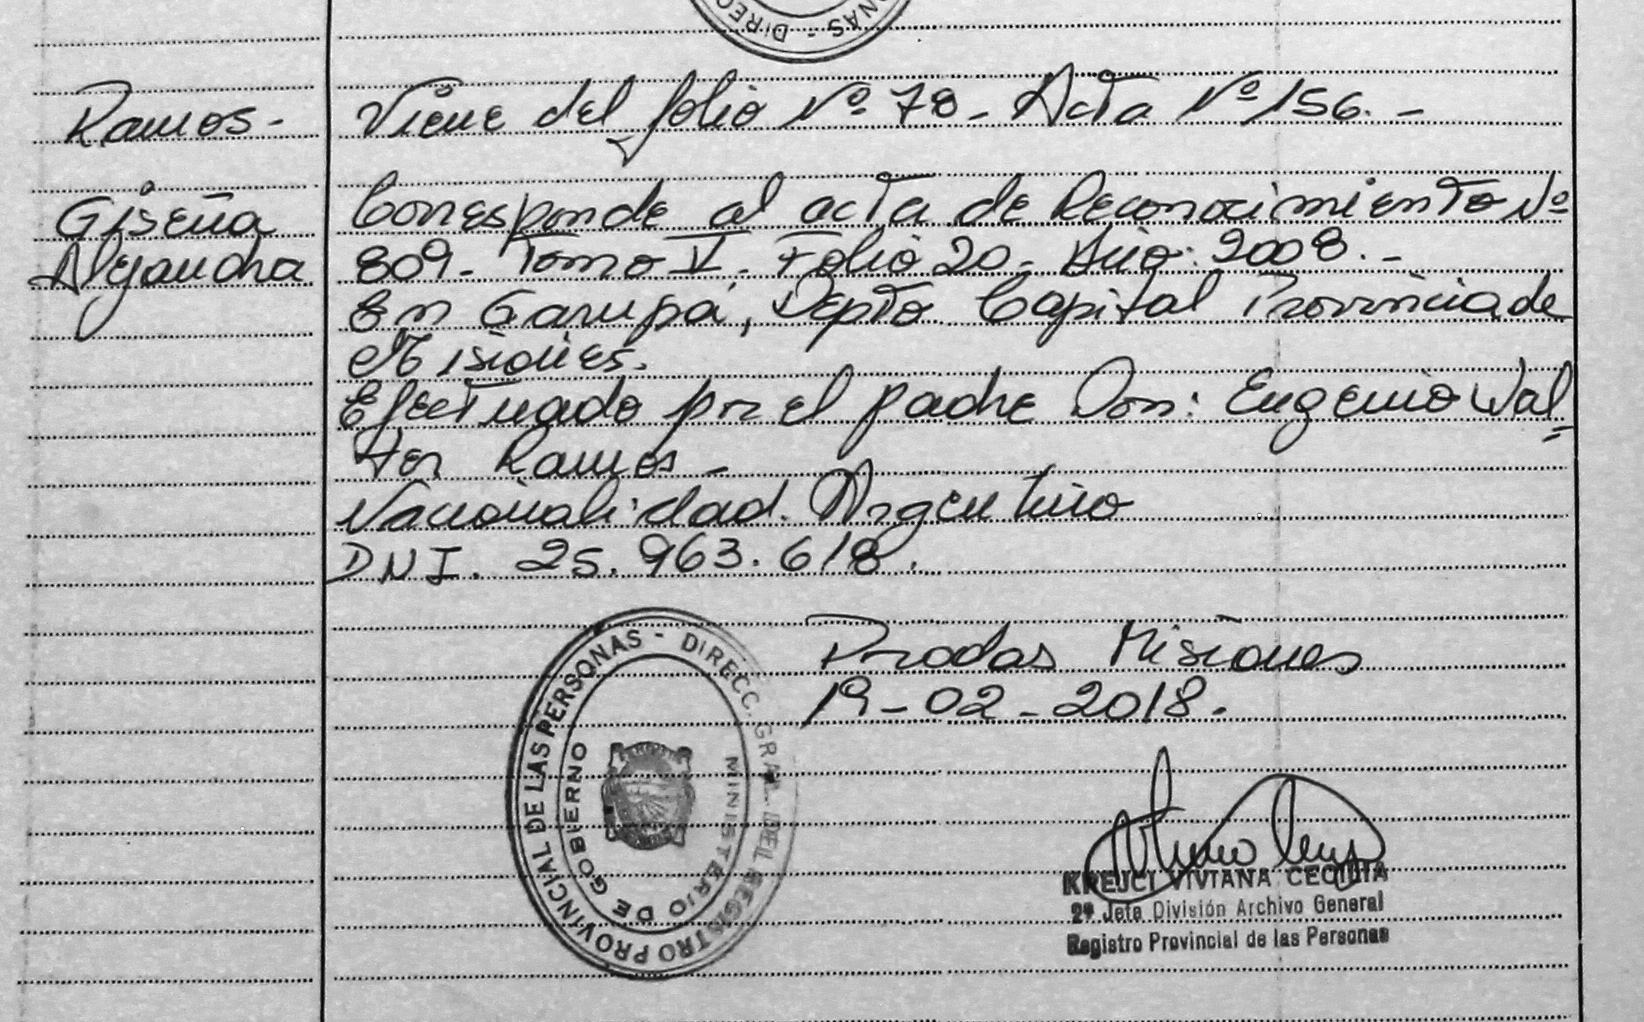 NAS - DIREC
Ramos-
Viene del folio Nº 78 - Acta Nº 156. -
Giseña
Alejandra
Corresponde al acta de Reconocimiento Nº
809. Tomo V. Folio 20. Año: 2008. -
En Garupá, Depto Capital Provincia de
Misiones.
Efectuado por el padre Don: Eugenio Wal=
ter Ramos -
Nacionalidad. Argentino
DNI. 25.963.618.
Misiones
19-02-2018.
DIRECC. GRAL. DEL REGISTRO PROVINCIAL DE LAS PERSONAS -
MINISTERIO DE GOBIERNO
KREJCI VIVIANA CECILIA
2º Jefe División Archivo General
Registro Provincial de las Personas